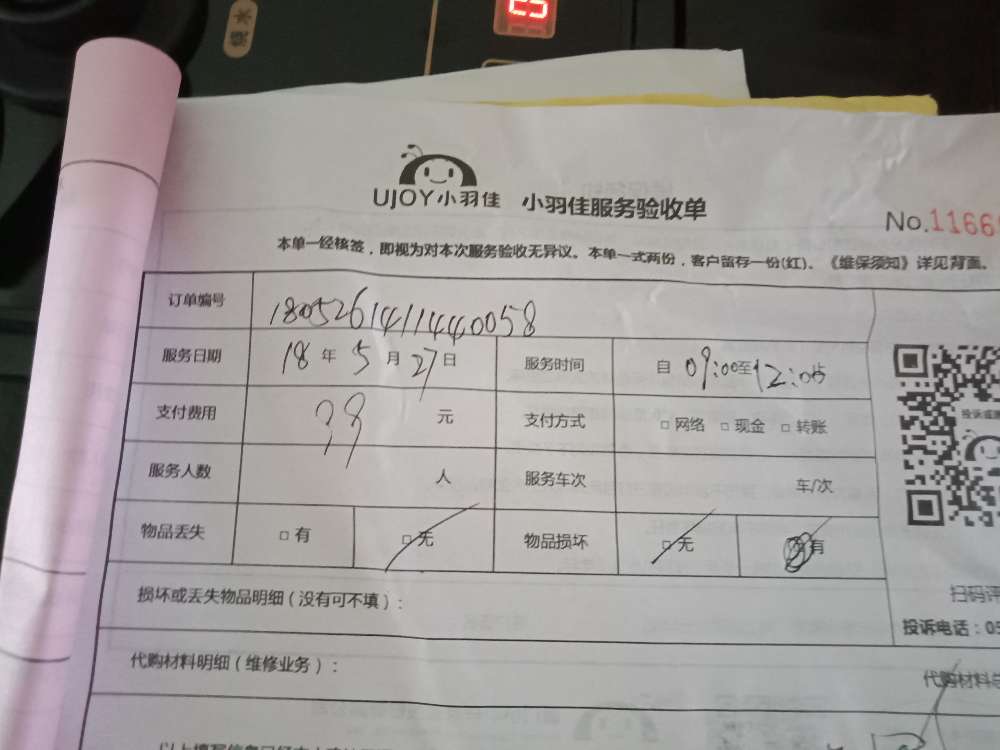 烧水
25
UJOY小羽佳 小羽佳服务验收单
No.1166
本单一经核签，即视为对本次服务验收无异议。本单一式两份，客户留存一份(红)。《维保须知》详见背面。
订单编号 1805261411440058
服务日期 18年5月27日 服务时间 自09:00至12:00
支付费用 元 支付方式 □网络 □现金 □转账
服务人数 人 服务车次 车/次
物品丢失 □有 □无 物品损坏 □无 有
损坏或丢失物品明细（没有可不填）：
扫码评
投诉电话：05
代购材料明细（维修业务）： 代购材料总